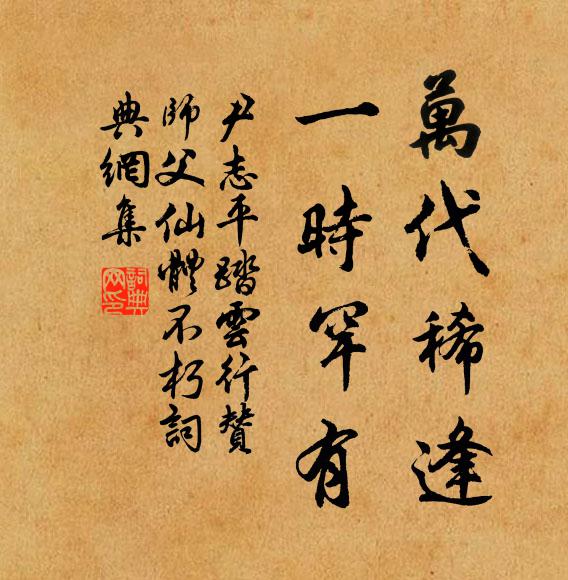 萬代稀逢
一時罕有
尹志平踏雲行贊
師父仙體不朽詞
典網集
詞典網印